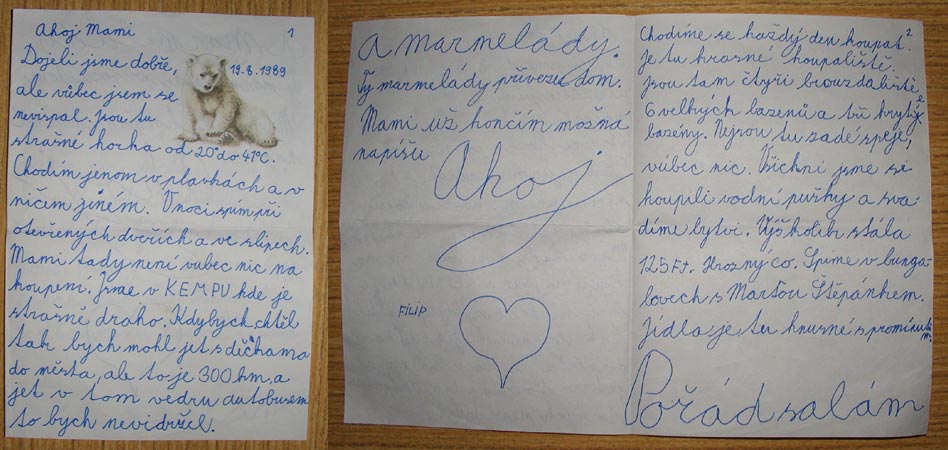 Ahoj Mami
1
Dojeli jsme dobře,
19.8.1989
ale vůbec jsem se
nevispal. jsou tu
strašné horka od 20° do 41°C.
Chodím jenom v plavkách a v
ničim jiném. V noci spím při
otevřených dvořích a ve slipech.
Mami tady není vubec nic na
koupení. Jsme v KEMPU kde je
strašné draho. Kdybych chtěl
tak bych mohl jet s děckama
do města, ale to je 300 km. a
jet v tom vedru autobusem
to bych nevidržel.
2
Chodíme se každý den koupat.
Je tu krasné koupaliště.
jsou tam čtyři brouzdaliště
6 velkých bazenů a tři krytý
bazény. Nejsou tu žadé speje,
vůbec nic. Všichni jsme si
koupili vodní pušky a sva
díme bytvi. Výs kolik stála
125 Ft. Hrozný co. Spíme v bunga-
lovech s Marťou Štěpánkem.
Jídla je tu hnusné s prominutím.
Pořád salám
a marmelády.
Ty marmelády přivezu dom.
Mami už končím možná
napíšu
Ahoj
FILIP